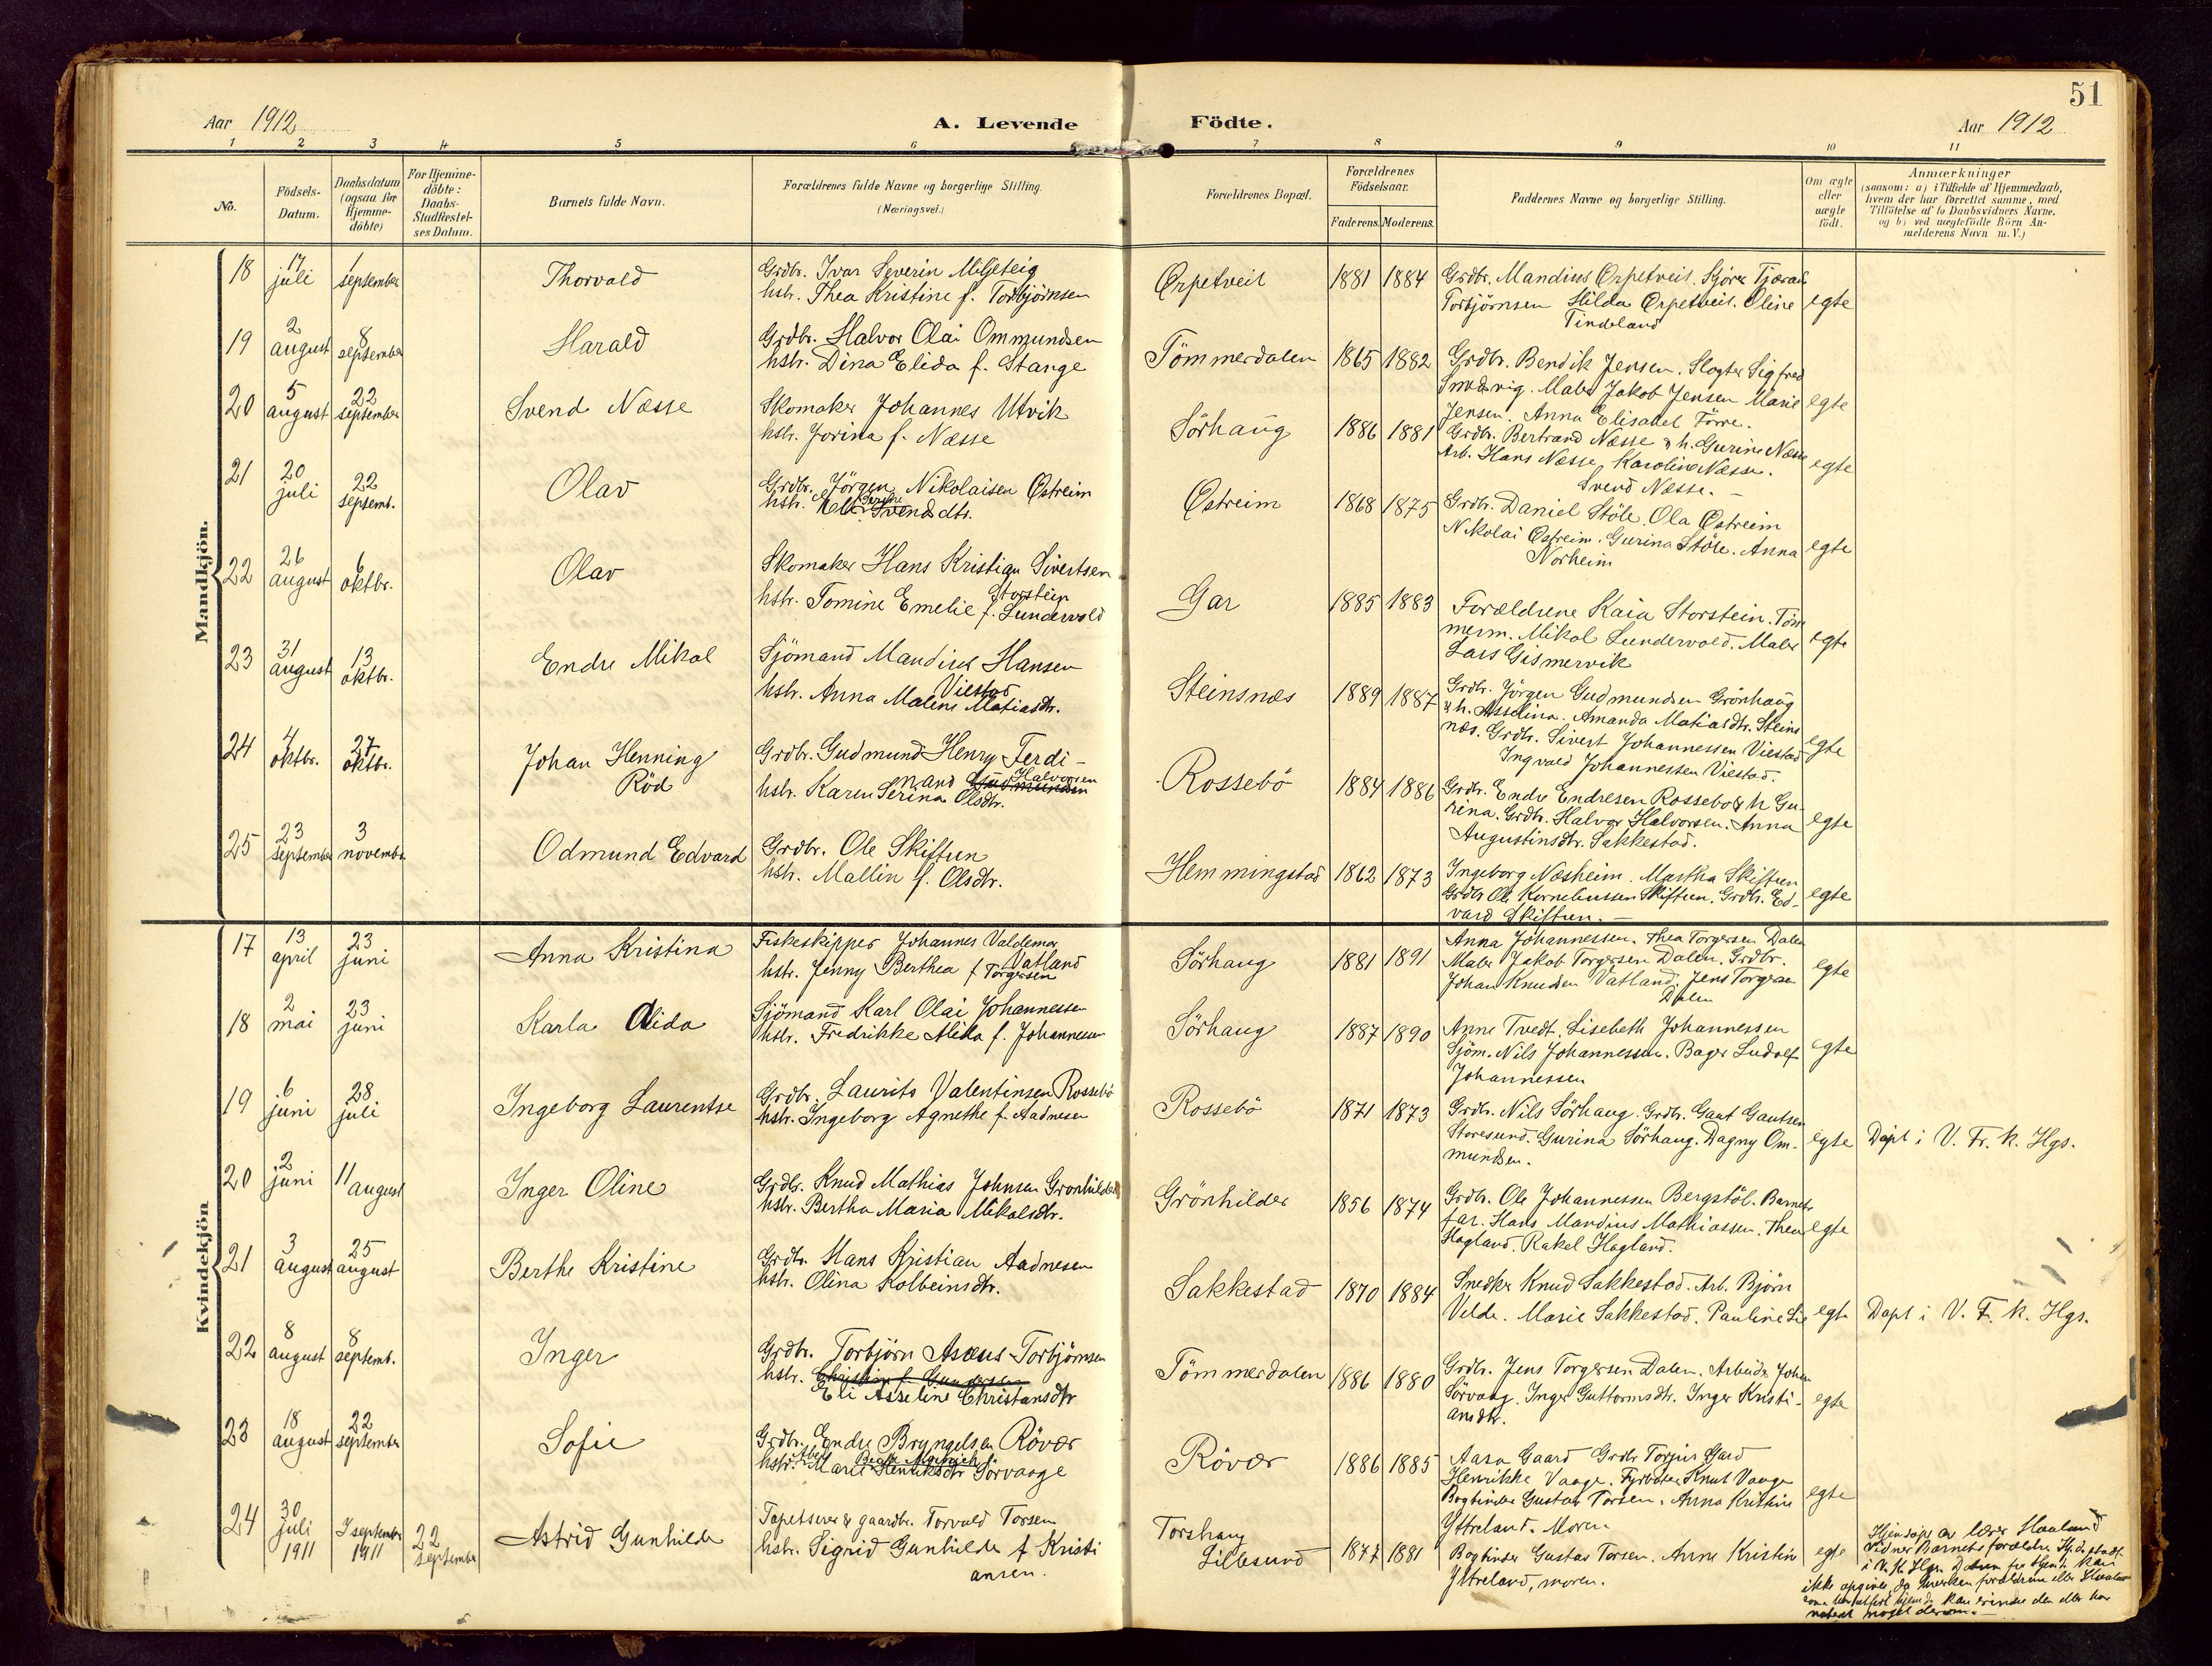 51
Aar 1912
A. Levende Födte.
Aar 1912
1 2 3 4 5 6 7 8 9 10 11
No.
Födsels-
Datum.
Daabsdatum
(ogsaa for
Hjemme-
döbte)
For Hjemme-
döbte:
Daabs-
Stadfæstel-
ses Datum.
Barnets fulde Navn.
Forældrenes fulde Navne og borgerlige Stilling.
(Næringsvei.)
Forældrenes Bopæl.
Forældrenes
Födselsaar.
Faderens. Moderens.
Faddernes Navne og borgerlige Stilling.
Om ægte
eller
uægte
födt.
Anmærkninger
(saasom: a) i Tilfælde af Hjemmedaab,
hvem der har forrettet samme, med
Tilföielse af to Daabsvidners Navne,
og b) ved uægtefödte Börn An-
melderens Navn m. V.)
Mandkjön.
18
17
juli
1
september
Thorvald
Grdbr. Ivar Severin Miljeteig
hstr. Thea Kristine f. Torbjörnsen
Ørpetveit
1881 1884
Grdbr. Mandius Ørpetveit. Sjörer Tjæran
Torbjörnsen Hilda Ørpetveit. Oline
Tindeland
egte
19
2
august
8
september
Harald
Grdbr. Halvor Olai Ommundsen
hstr. Dina Elida f. Stange
Tömmerdalen
1865 1882
Grdbr. Bendik Jensen. Slagter Sigfred
Smedvig. Maler Jakob Jensen Marie
Jensen. Anna Elisabet Förre.
egte
20
5
august
22
september
Svend Næsse
Skomaker Johannes Utvik
hstr. Jorina f. Næsse
Sörhaug
1886 1881
Grdbr. Bertrand Næsse & h. Gurine Næsse
Arb. Hans Næsse, Karoline Næsse.
Svend Næsse. —
egte
21
20
juli
22
septemb.
Olav
Grdbr. Jörgen Nikolaisen Østreim
hstr. Svendsdtr.
Østreim
1868 1875
Grdbr. Daniel Stöle. Ola Østreim
Nikolai Østreim. Gurina Stöle. Anna
Norheim
egte
22
26
august
6
oktbr.
Olav
Skomaker Hans Kristian Sivertsen
Storstein
hstr. Tomine Emelie f. Lundervold
Gar
1885 1883
Forældrene Kaia Storstein. Töm
merm. Mikal Lundervold. Maler
Lars Gismervik
egte
23
31
august
13
oktbr.
Endre Mikal
Sjömand Mandius Hansen
Viestad
hstr. Anna Malene Matiasdtr.
Steinsnes
1889 1887
Grdbr. Jörgen Gudmundsen Grönhaug
& h. Asselina. Amanda Matiasdtr. Steins
nes. Grdbr. Sivert Johannessen Viestad
Ingvald Johannessen Viestad.
egte
24
4
oktbr.
27
oktbr.
Johan Henning
Röd
Grdbr. Gudmund Henry Ferdi-
nand Gudmundsen Halvorsen
hstr. Karen Serina Olsdtr.
Rossebö
1884 1886
Grdbr. Endre Endresen Rossebö & h Gu-
rina. Grdbr. Halvor Halvorsen. Anna
Augustinsdtr. Sakkestad.
egte
25
23
september
3
novembr
Odmund Edvard
Grdbr. Ole Skiftun
hstr. Mallin f. Olsdtr.
Hemmingstad
1862 1873
Ingeborg Næsheim. Martha Skiftun
Grdbr Ole Korneliussen Skiftun. Grdbr. Ed-
vard Skiftun. —
egte
Kvindekjön
17
13
april
23
juni
Anna Kristina
Fiskeskipper Johannes Valdemar
Vatland
hstr. Jenny Berthea f Torgersen
Sörhaug
1881 1891
Anna Johannessen. Thea Torgersen Dalen
Maler Jakob Torgersen Dalen. Grdbr.
Johan Knudsen Vatland. Jens Torgersen
Dalen
egte
18
2
mai
23
juni
Karla Alida
Sjömand Karl Olai Johannessen
hstr. Fredrikke Alida f. Johannessen
Sörhaug
1887 1890
Anne Tvedt. Lisebeth Johannessen
Sjöm. Nils Johannessen. Bager Ludolf
Johannessen
egte
19
6
juni
28
juli
Ingeborg Laurentse
Grdbr. Laurits Valentinsen Rossebö
hstr. Ingeborg Agnethe f. Aadnesen
Rossebö
1871 1873
Grdbr. Nils Sörhaug. Grdbr. Gaut Gautsen
Storesund. Gurina Sörhaug. Dagny Om-
mundsen.
egte
Döpt i V. Fr. k. Hgs.
20
2
juni
11
august
Inger Oline
Grdbr. Knud Mathias Johnsen Grönhilder
hstr. Bertha Maria Mikalsdtr.
Grönhilder
1856 1874
Grdbr. Ole Johannessen Bergstöl. Barnets
far. Hans Mandius Mathiassen. Thea
Hagland. Rakel Hagland.
egte
21
3
august
25
august
Berthe Kristine
Grdbr. Hans Kristian Aadnesen
hstr. Olina Kolbeinsdtr.
Sakkestad
1870 1884
Snedker Knud Sakkestad. Arb. Björn
Velde. Marie Sakkestad. Pauline Lie
egte
Döpt i V. F. k. Hgs.
22
8
august
8
septemb.
Inger
Grdbr. Torbjörn Asæus Torbjörnsen
hstr. Christine f. Gundersen
Eli Asseline Christansdtr
Tömmerdalen
1886 1880
Grdbr. Jens Torgersen Dalen. Arbeider Johan
Sörvaag. Inger Guttormsdtr. Inger Kristi-
ansdtr.
egte
23
18
august
22
september
Sofie
Grdbr. Endre Bryngelsen Rövær
hstr. Marie Henriksdtr Sörvaage
Rövær
1886 1885
Aasa Gaard Grdbr Torjus Gard
Henrikke Vaage. Fyrböter Knut Vaage
Bogbinder Gustav Torsen. Anna Kristine
Yttreland. Moren.
egte
24
30
juli
1911
7 september
1911
22
september
Astrid Gunhilde
Tapetserer & gaardbr. Torvald Torsen
hstr. Sigrid Gunhilde f Kristi
ansen.
Torshaug
Lillesund
1877 1881
Bogbinder Gustav Torsen. Anne Kristin
Yttreland, moren.
egte
Hjemdöpt av lærer Haaland
Vidner Barnets forældre
ikke opgives, da hverken forældrene eller Haaland
kan erindre den eller har
noteret noget derom. —